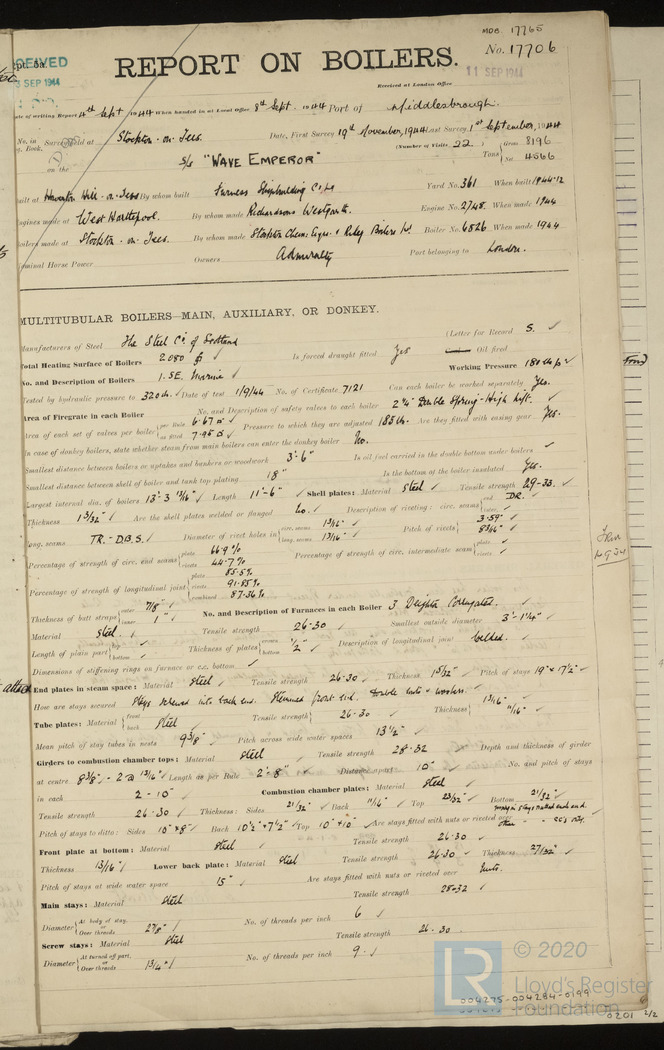 MDB 17765
No. 17706
Rpt. 5a.
RECEIVED
SEP 1944
REPORT ON BOILERS.
11 SEP 1944
Received at London Office
Date of writing Report 4th Sept 1944 When handed in at Local Office 8th Sept. 1944 Port of Middlesbrough.
No. in Survey held at Stockton-on-Tees. Date, First Survey 19th November, 1944 Last Survey 1st September, 1944
Reg. Book. (Number of Visits 22)
on the S/S "WAVE EMPEROR" Tons { Gross 8196 Net 4566
Built at Haverton Hill-on-Tees By whom built Furness Shipbuilding Co. Ltd Yard No. 361 When built 1944-12
Engines made at West Hartlepool. By whom made Richardsons Westgarth. Engine No. 2748. When made 1944
Boilers made at Stockton-on-Tees. By whom made Stockton Chem. Engrs. & Riley Boilers Ld. Boiler No. 6526 When made 1944
Nominal Horse Power Owners Admiralty Port belonging to London.
MULTITUBULAR BOILERS—MAIN, AUXILIARY, OR DONKEY.
Manufacturers of Steel The Steel Co. of Scotland (Letter for Record S.
Total Heating Surface of Boilers 2080 Is forced draught fitted Yes Oil fired
No. and Description of Boilers 1. S.E. Marine Working Pressure 180 lb
Tested by hydraulic pressure to 320 lb. Date of test 1/9/44 No. of Certificate 7121 Can each boiler be worked separately Yes.
Area of Firegrate in each Boiler No. and Description of safety valves to each boiler 2¼" Double Spring-High Lift.
Area of each set of valves per boiler { per Rule 6.67 as fitted 7.95 Pressure to which they are adjusted 185 lb. Are they fitted with easing gear Yes.
In case of donkey boilers, state whether steam from main boilers can enter the donkey boiler No.
Smallest distance between boilers or uptakes and bunkers or woodwork 3'-6" Is oil fuel carried in the double bottom under boilers
Smallest distance between shell of boiler and tank top plating 18" Is the bottom of the boiler insulated Yes.
Largest internal dia. of boilers 13'-3 13/16" Length 11'-6" Shell plates: Material Steel Tensile strength 29-33.
Thickness 1 3/32" Are the shell plates welded or flanged No. Description of riveting: circ. seams { end DR. inter.
long. seams TR.-D.B.S. Diameter of rivet holes in { circ. seams 1 3/16" long. seams 1 3/16" Pitch of rivets { 3.59"
Percentage of strength of circ. end seams { plate 66.9% rivets 44.7% Percentage of strength of circ. intermediate seam { plate rivets
Percentage of strength of longitudinal joint { plate 85.5% rivets 91.85% combined 87.36%
Thickness of butt straps { outer 7/8" inner 1" No. and Description of Furnaces in each Boiler 3 Deighton Corrugated.
Material Steel. Tensile strength 26-30 Smallest outside diameter 3'-1¼"
Length of plain part { top bottom Thickness of plates { crown bottom ½" Description of longitudinal joint Welded.
Dimensions of stiffening rings on furnace or c.c. bottom
End plates in steam space: Material Steel Tensile strength 26-30 Thickness 1 5/32" Pitch of stays 19" x 17½"
How are stays secured Stays screwed into back end. Stemmed front end. Double nuts & washers.
Tube plates: Material { front back Steel Tensile strength { 26-30 Thickness { 13/16" 11/16"
Mean pitch of stay tubes in nests 9 3/8" Pitch across wide water spaces 13½"
Girders to combustion chamber tops: Material Steel Tensile strength 28-32 Depth and thickness of girder
at centre 8 3/8"-2 @ 13/16" Length as per Rule 2'-8" Distance apart 10" No. and pitch of stays
in each 2-10" Combustion chamber plates: Material Steel
Tensile strength 26-30 Thickness: Sides 21/32" Back 11/16" Top 23/32" Bottom 21/32"
Pitch of stays to ditto: Sides 10" x 8" Back 10½" x 7½" Top 10" x 10" Are stays fitted with nuts or riveted over
Front plate at bottom: Material Steel Tensile strength 26-30
Thickness 13/16" Lower back plate: Material Steel Tensile strength 26-30 Thickness 27/32"
Pitch of stays at wide water space 15" Are stays fitted with nuts or riveted over Nuts.
Main stays: Material Steel Tensile strength 28-32
Diameter { At body of stay, or Over threads 2 7/8" No. of threads per inch 6
Screw stays: Material Steel Tensile strength 26-30
Diameter { At turned off part, or Over threads 1¾" No. of threads per inch 9.
LR
© 2020
Lloyd's Register
Foundation
004275-004284-0199
0201 2/2